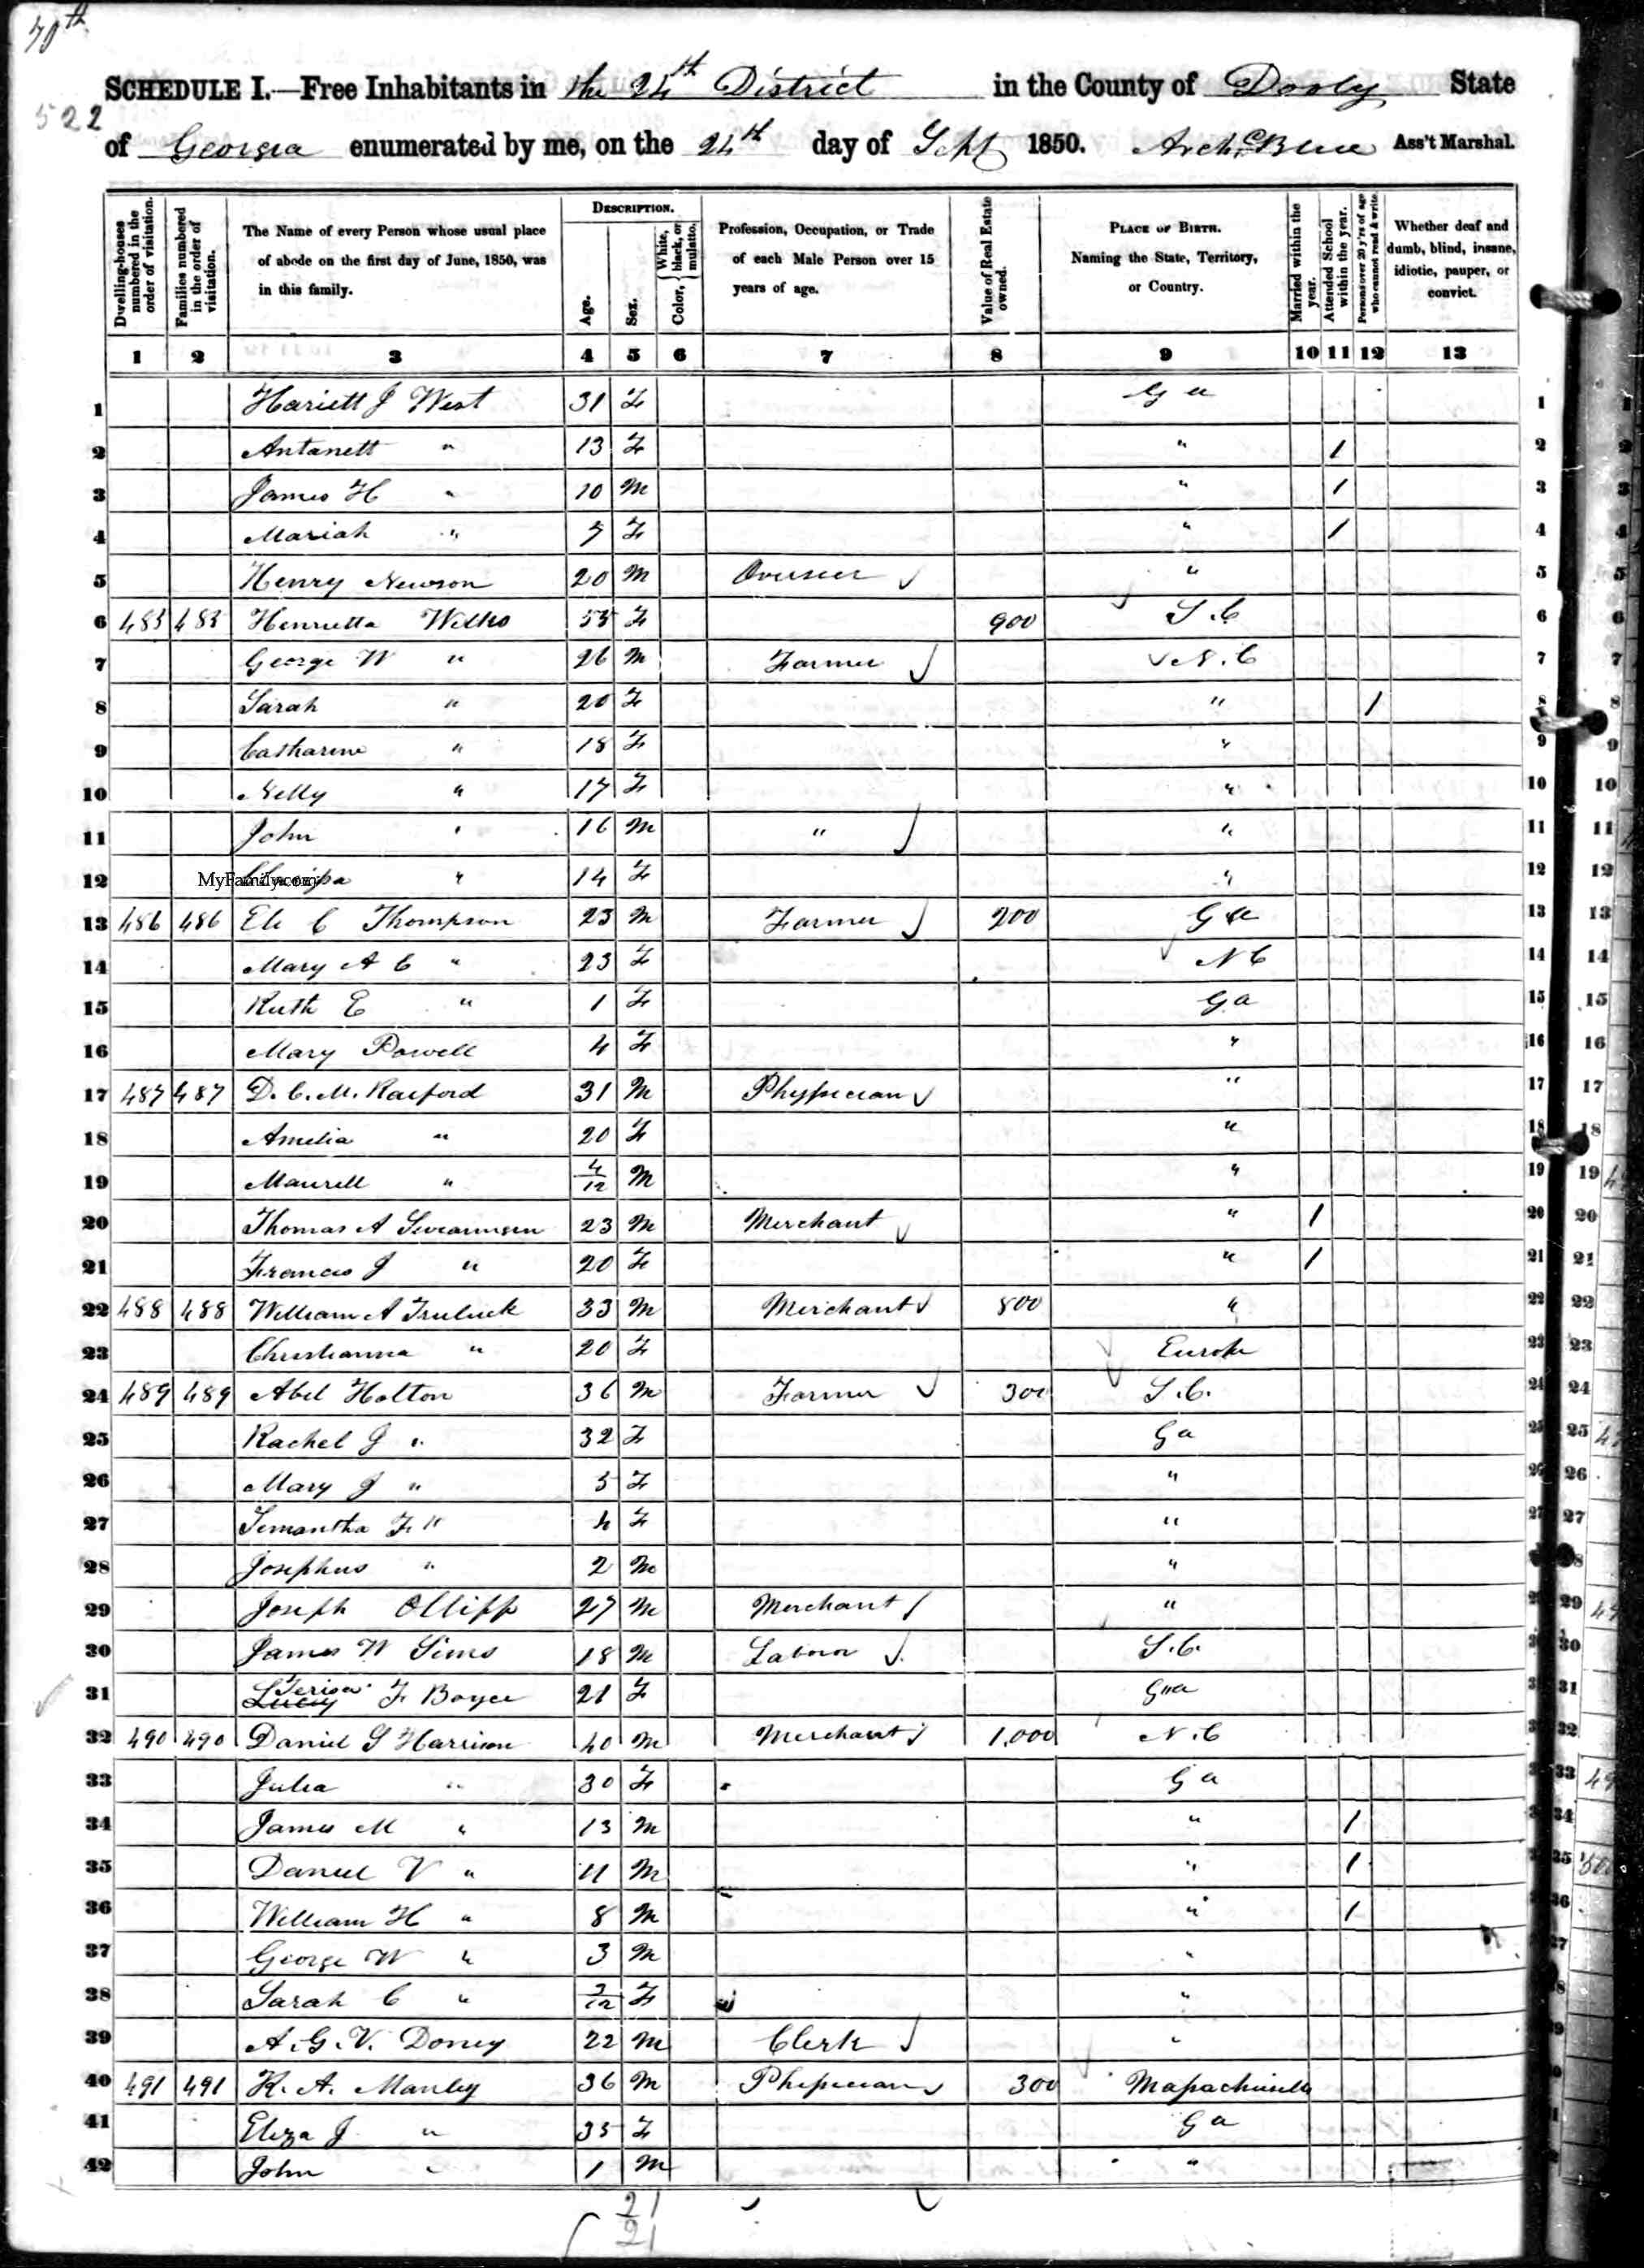 70th
SCHEDULE I.—Free Inhabitants in the 24th District in the County of Dooly State
522
of Georgia enumerated by me, on the 24th day of Sept 1850. Archd Blue Ass't Marshal.
Dwelling-houses numbered in the order of visitation.
Families numbered in the order of visitation.
The Name of every Person whose usual place of abode on the first day of June, 1850, was in this family.
DESCRIPTION.
Age.
Sex.
Color, { White, black, or mulatto.
Profession, Occupation, or Trade of each Male Person over 15 years of age.
Value of Real Estate owned.
PLACE OF BIRTH. Naming the State, Territory, or Country.
Married within the year.
Attended School within the year.
Persons over 20 y'rs of age who cannot read & write.
Whether deaf and dumb, blind, insane, idiotic, pauper, or convict.
1 2 3 4 5 6 7 8 9 10 11 12 13
1 Hariett J West 31 F Ga 1
2 Antanett " 13 F " 1 2
3 James H " 10 M " 1 3
4 Mariah " 7 F " 1 4
5 Henry Newson 20 M Overseer " 5
6 485 485 Henrietta Wilks 55 F 900 S.C 6
7 George W " 26 M Farmer N.C 7
8 Sarah " 20 F " 1 8
9 Catharine " 18 F " 9
10 Nelly " 17 F " 10
11 John " 16 M " " 11
12 MyFamily.com " 14 F " 12
13 486 486 Eli C Thompson 23 M Farmer 200 Ga 13
14 Mary A C " 23 F N C 14
15 Ruth E " 1 F Ga 15
16 Mary Powell 4 F " 16
17 487 487 D. C. M. Raiford 31 M Physician " 17
18 Amelia " 20 F " 18
19 Maurell " 4/12 M " 19
20 Thomas A Swearingen 23 M Merchant " 1 20
21 Frances J " 20 F " 1 21
22 488 488 William A Truluck 33 M Merchant 800 " 22
23 Christianna " 20 F Europe 23
24 489 489 Abel Holton 36 M Farmer 300 S.C. 24
25 Rachel J " 32 F Ga 25
26 Mary J " 5 F " 26
27 Semantha F " 4 F " 27
28 Josephus " 2 M "
29 Joseph Ollipp 27 M Merchant " 29
30 James W Sims 18 M Labour S.C. 30
31 Lucy Terisa F Boyce 21 F Ga 31
32 490 490 Daniel G Harrison 40 M Merchant 1,000 N.C 32
33 Julia " 30 F Ga 33
34 James M " 13 M " 1 34
35 Daniel V " 11 M " 1 35
36 William H " 8 M " 1 36
37 George W " 3 M "
38 Sarah C " 3/12 F "
39 A. G. V. Doney 22 M Clerk "
40 491 491 K. A. Manley 36 M Physician 300 Massachusetts
41 Eliza J " 35 F Ga
42 John " 1 M "
21
21